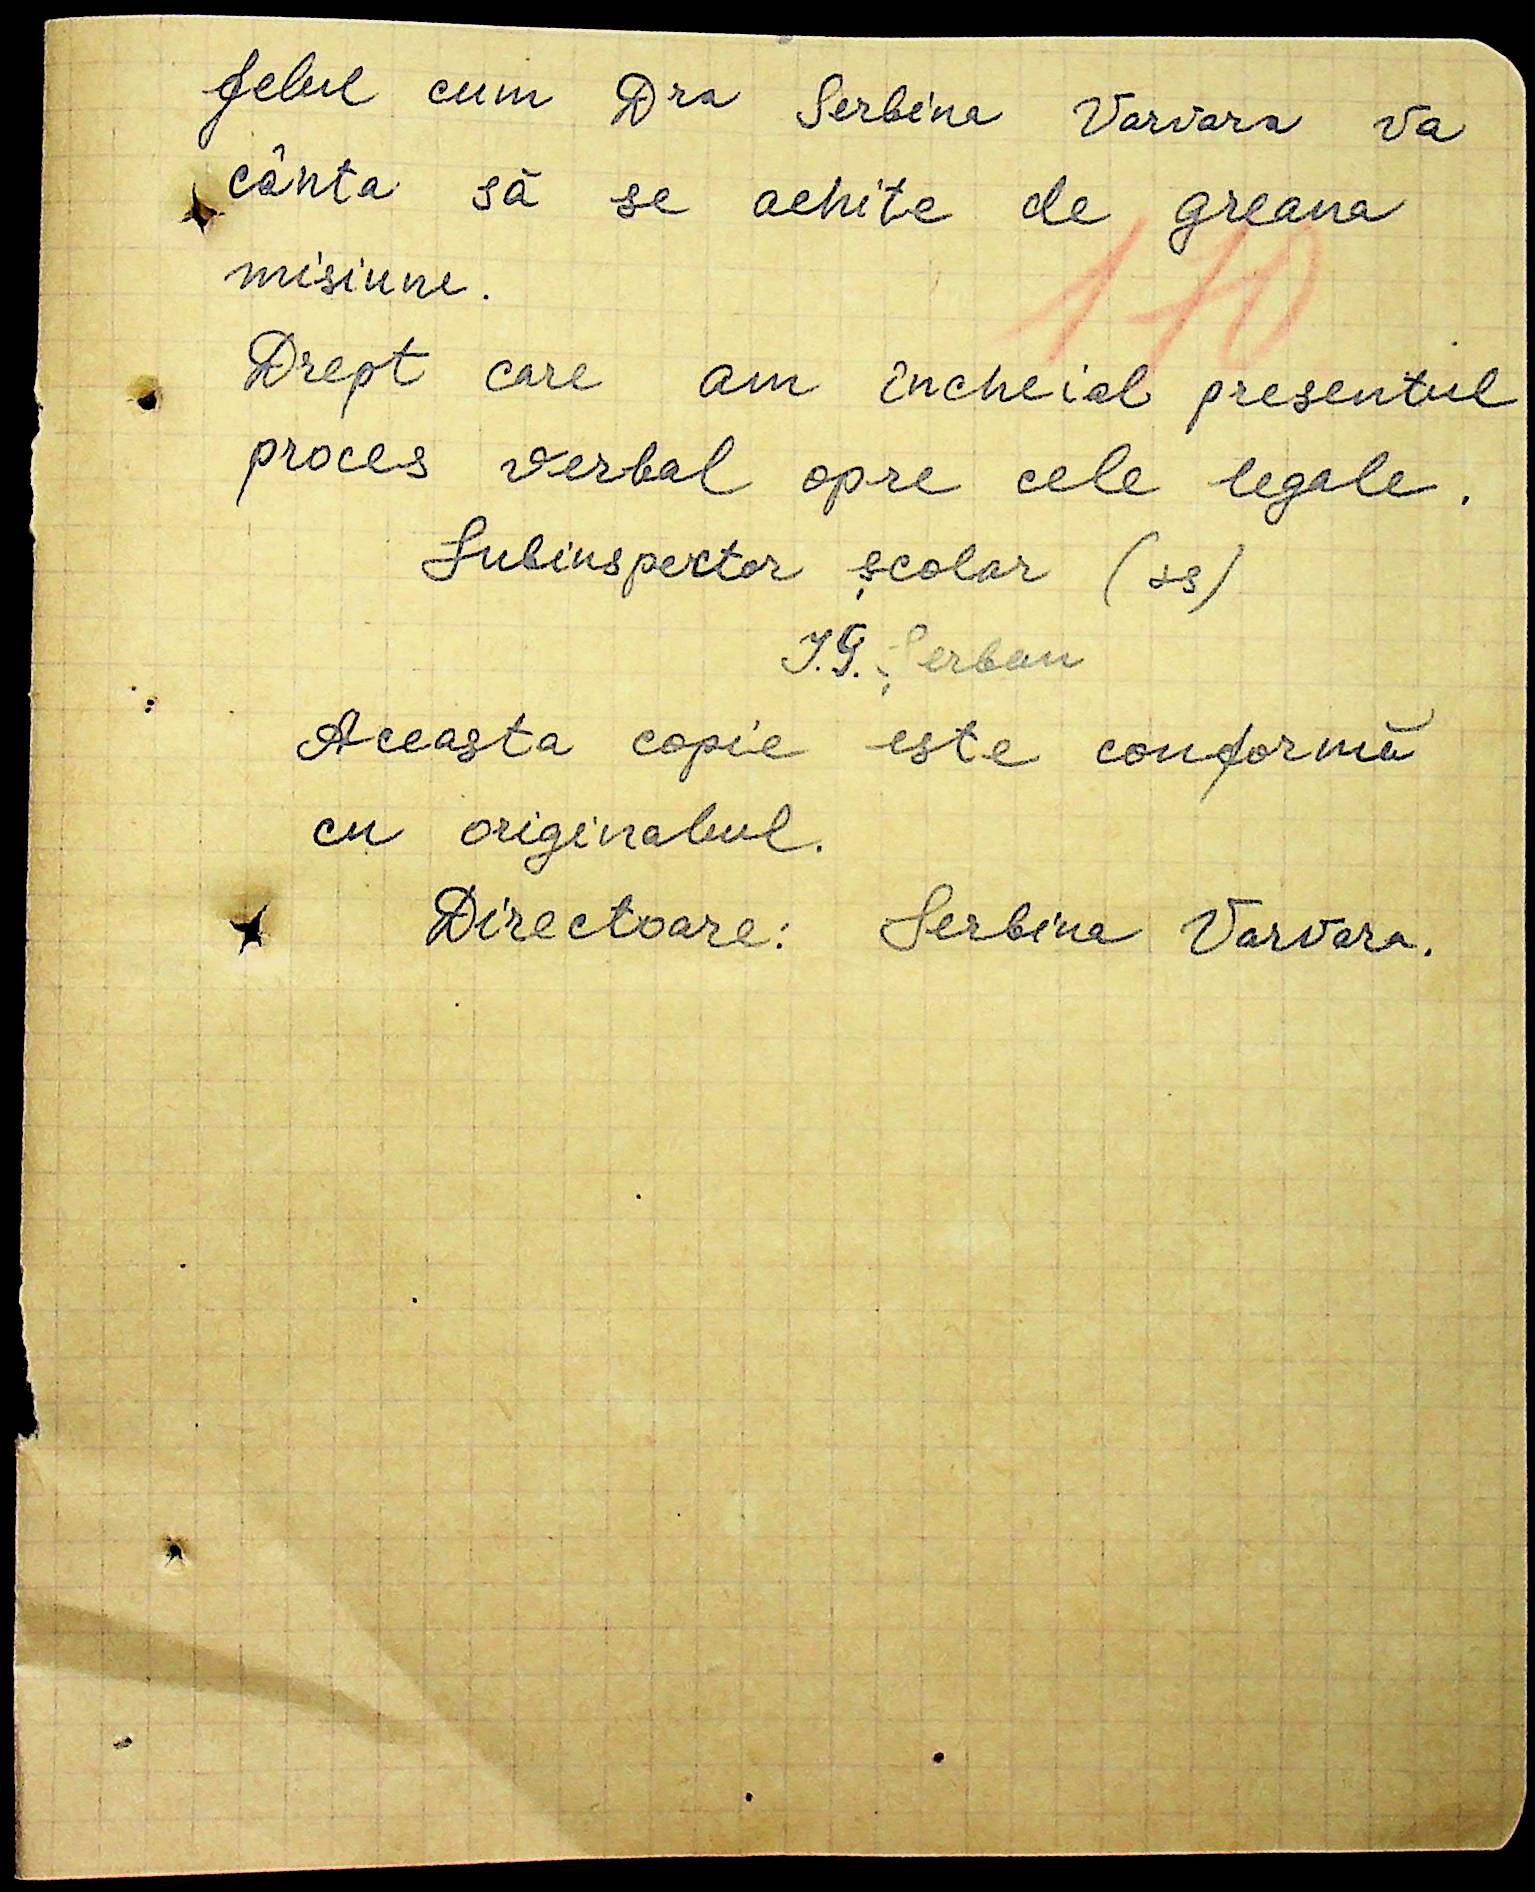 felul cum Dra Serbina Varvara va
cânta să se achite de greaua
misiune.
110
Drept care am încheial presentul
proces verbal spre cele legale.
Subinspector școlar (ss)
I.G. Șerban
Aceasta copie este conformă
cu originalul.
Directoare: Serbina Varvara.